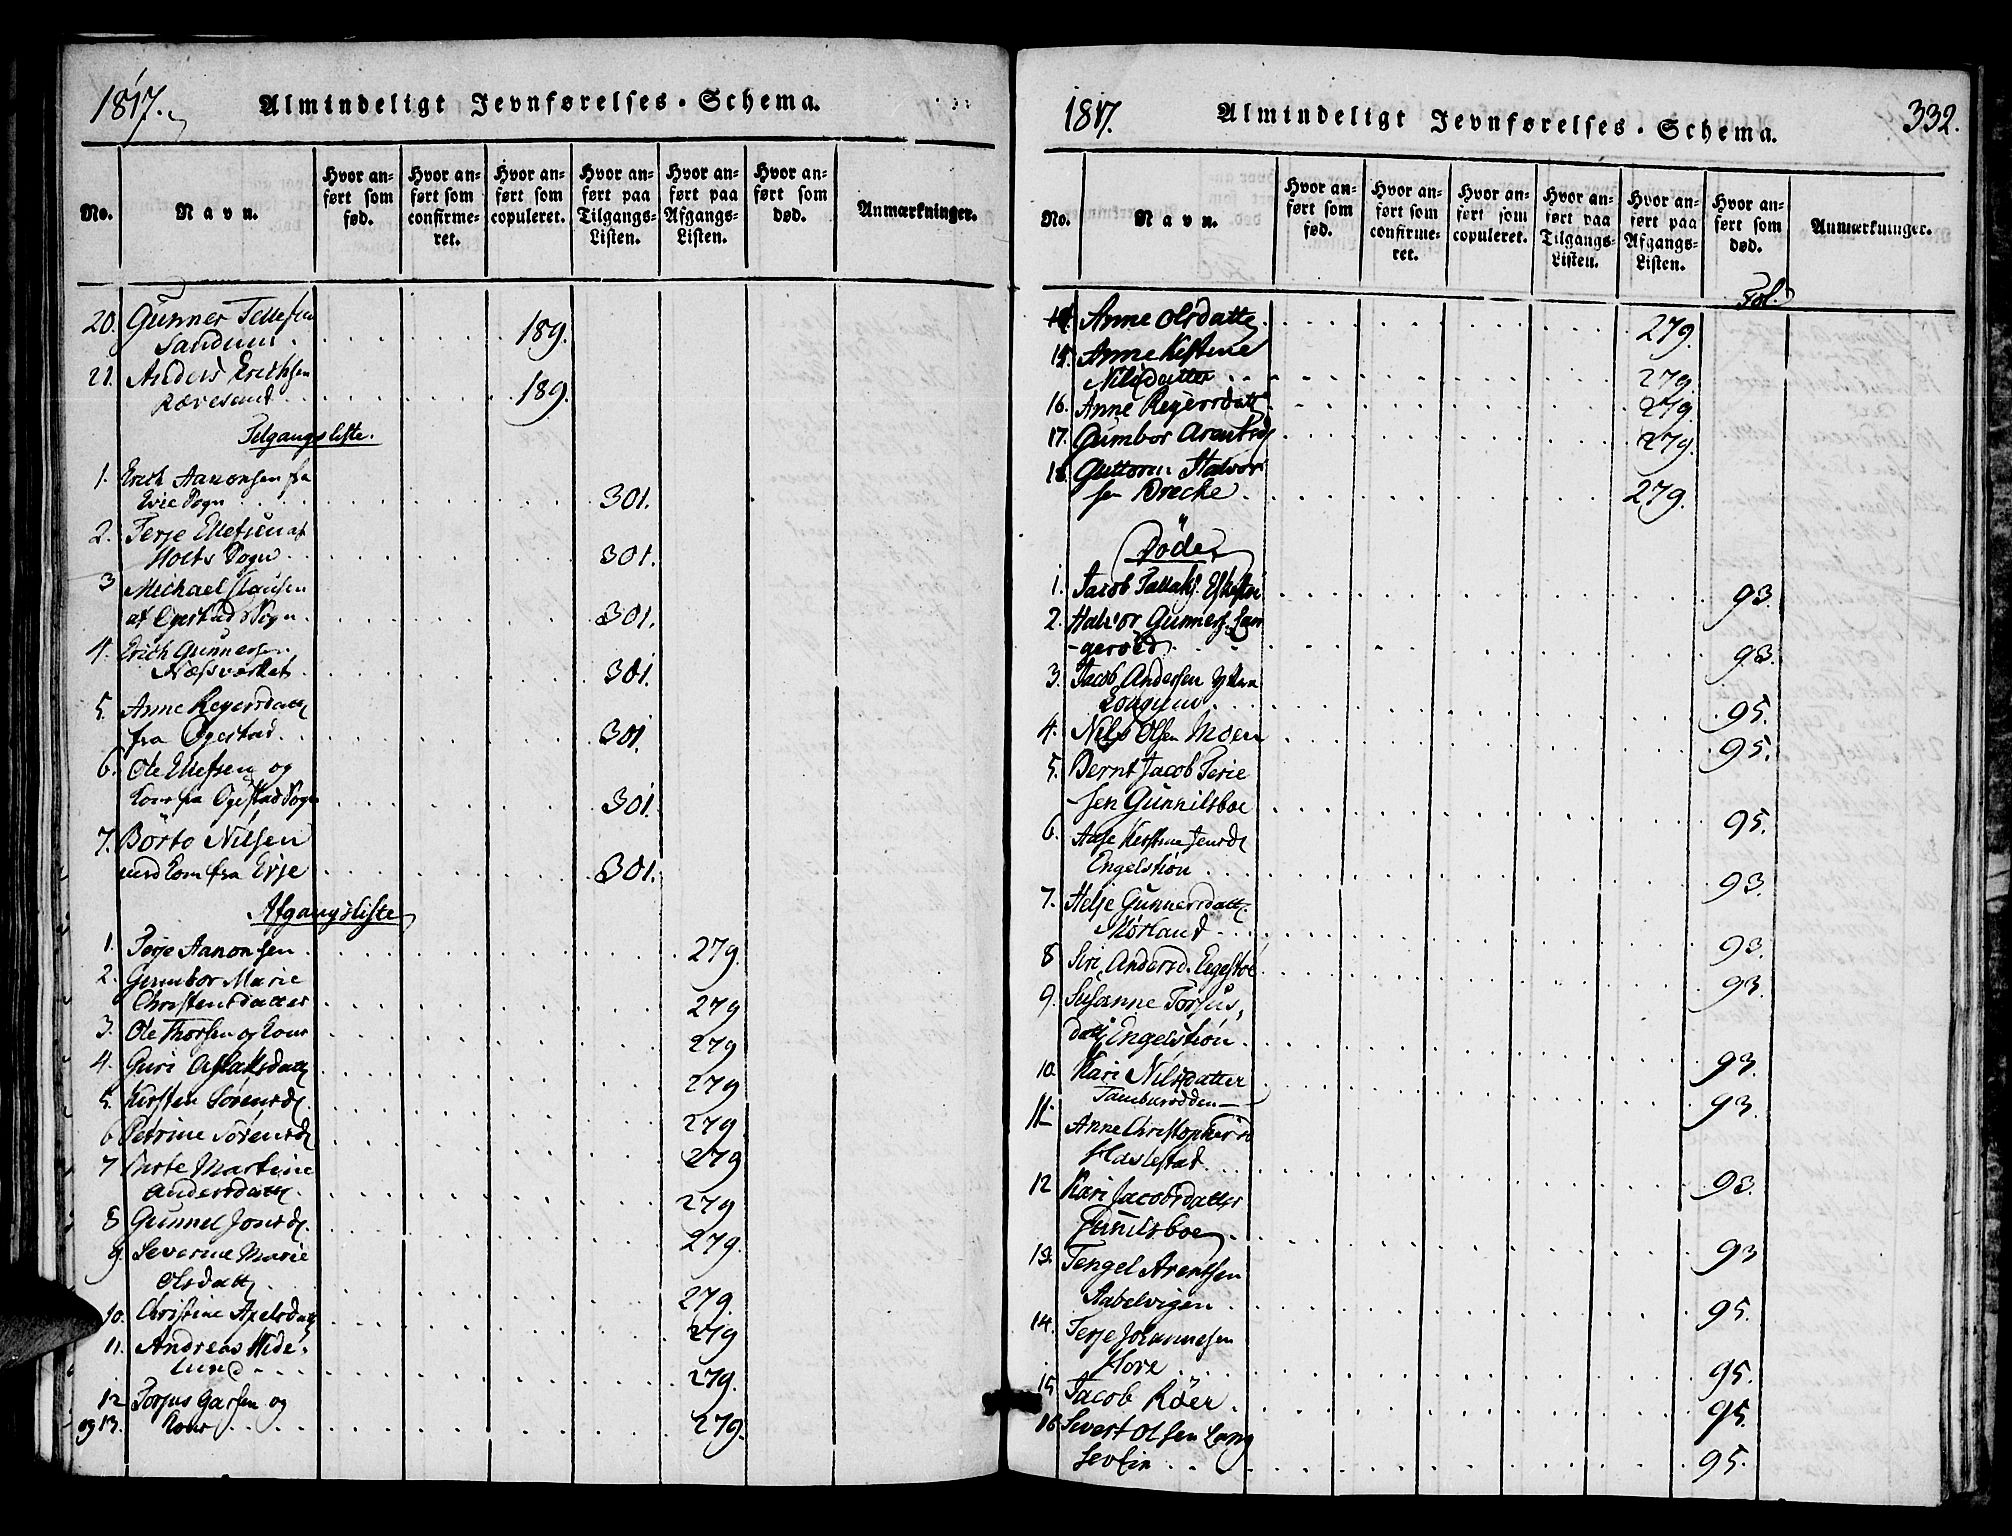 1817.
Almindeligt Jevnførelses-Schema.
No.
Navn.
Hvor anført som fød.
Hvor anført som confirmeret.
Hvor anført som copuleret.
Hvor anført paa Tilgangs-Listen.
Hvor anført paa Afgangs-Listen.
Hvor anført som død.
Anmærkninger.
20. Gunner Tellefsen
Sandum . 189.
21. Anders Erichsen
Rævesand . 189.
Tilgangsliste.
1. Erich Aanonsen fra
Evje Sogn 301.
2. Terje Ellefsen af
Holts Sogn 301.
3 Michael Clausen
af Ogestad Sogn 301.
4. Erich Gunnersen
Næsværket 301.
5. Anne Regersdatt
fra Ogestad 301.
6. Ole Ellefsen og
kone fra Ogestad Sogn 301.
7. Börto Nilsen
med kone fra Evje 301.
Afgangsliste
1. Terje Aanonsen 279.
2. Gumbor Marie
Christensdatter 279
3. Ole Thorsen og kone 279
4. Guri Aslaksdatt 279
5. Kirsten Sörensd. 279.
6 Petrine Sörensd 279
7 Birte Martine
Andersdatt. 279
8 Gunnel Jonsd. 279.
9. Severine Marie
Olsdatt 279.
10. Christine Axelsdatt 279
11. Andreas Hide-
lund 279.
12 Torjus Garsen og
og 13. Kone 279.
1817.
Almindeligt Jevnførelses-Schema.
332.
No.
Navn.
Hvor anført som fød.
Hvor anført som confirmeret.
Hvor anført som copuleret.
Hvor anført paa Tilgangs-Listen.
Hvor anført paa Afgangs-Listen.
Hvor anført som død.
Anmærkninger.
Fol.
14. Anne Olsdatt 279.
15. Anne Kistine
Nilsdatter 279.
16. Anne Regersdatt 279.
17. Gumbor Arentsd 279.
18. Guttorm Halvor
sen Brecke 279.
Döde
1. Jacob Tallaks. 93.
2. Halvor Gunners. Lan
geröed 93.
3. Jacob Andersen Yttre
Longum 95.
4. Nils Olsen Moen 95.
5. Bernt Jacob Terje
sen Gunnilsboe 95.
6. Aase Kirstine Jensd
Engelstiøn 93.
7. Helje Gunnersdatt.
Mörland 93.
8 Siri Andersd. 93.
9. Susanne Torjus,
datt Engelstiøn. 93.
10. Kari Nilsdatter
Tambursodden 93.
11. Anne Christophersd
Haslestad 93.
12 Kari Jacobsdatter
Gunilsboe 93
13. Tengel Arentsen
Aabelvigen 95.
14. Terje Johannesen
Hove 95.
15 Jacob Röer 95.
16 Sivert Olsen Lang
sevlin 95.